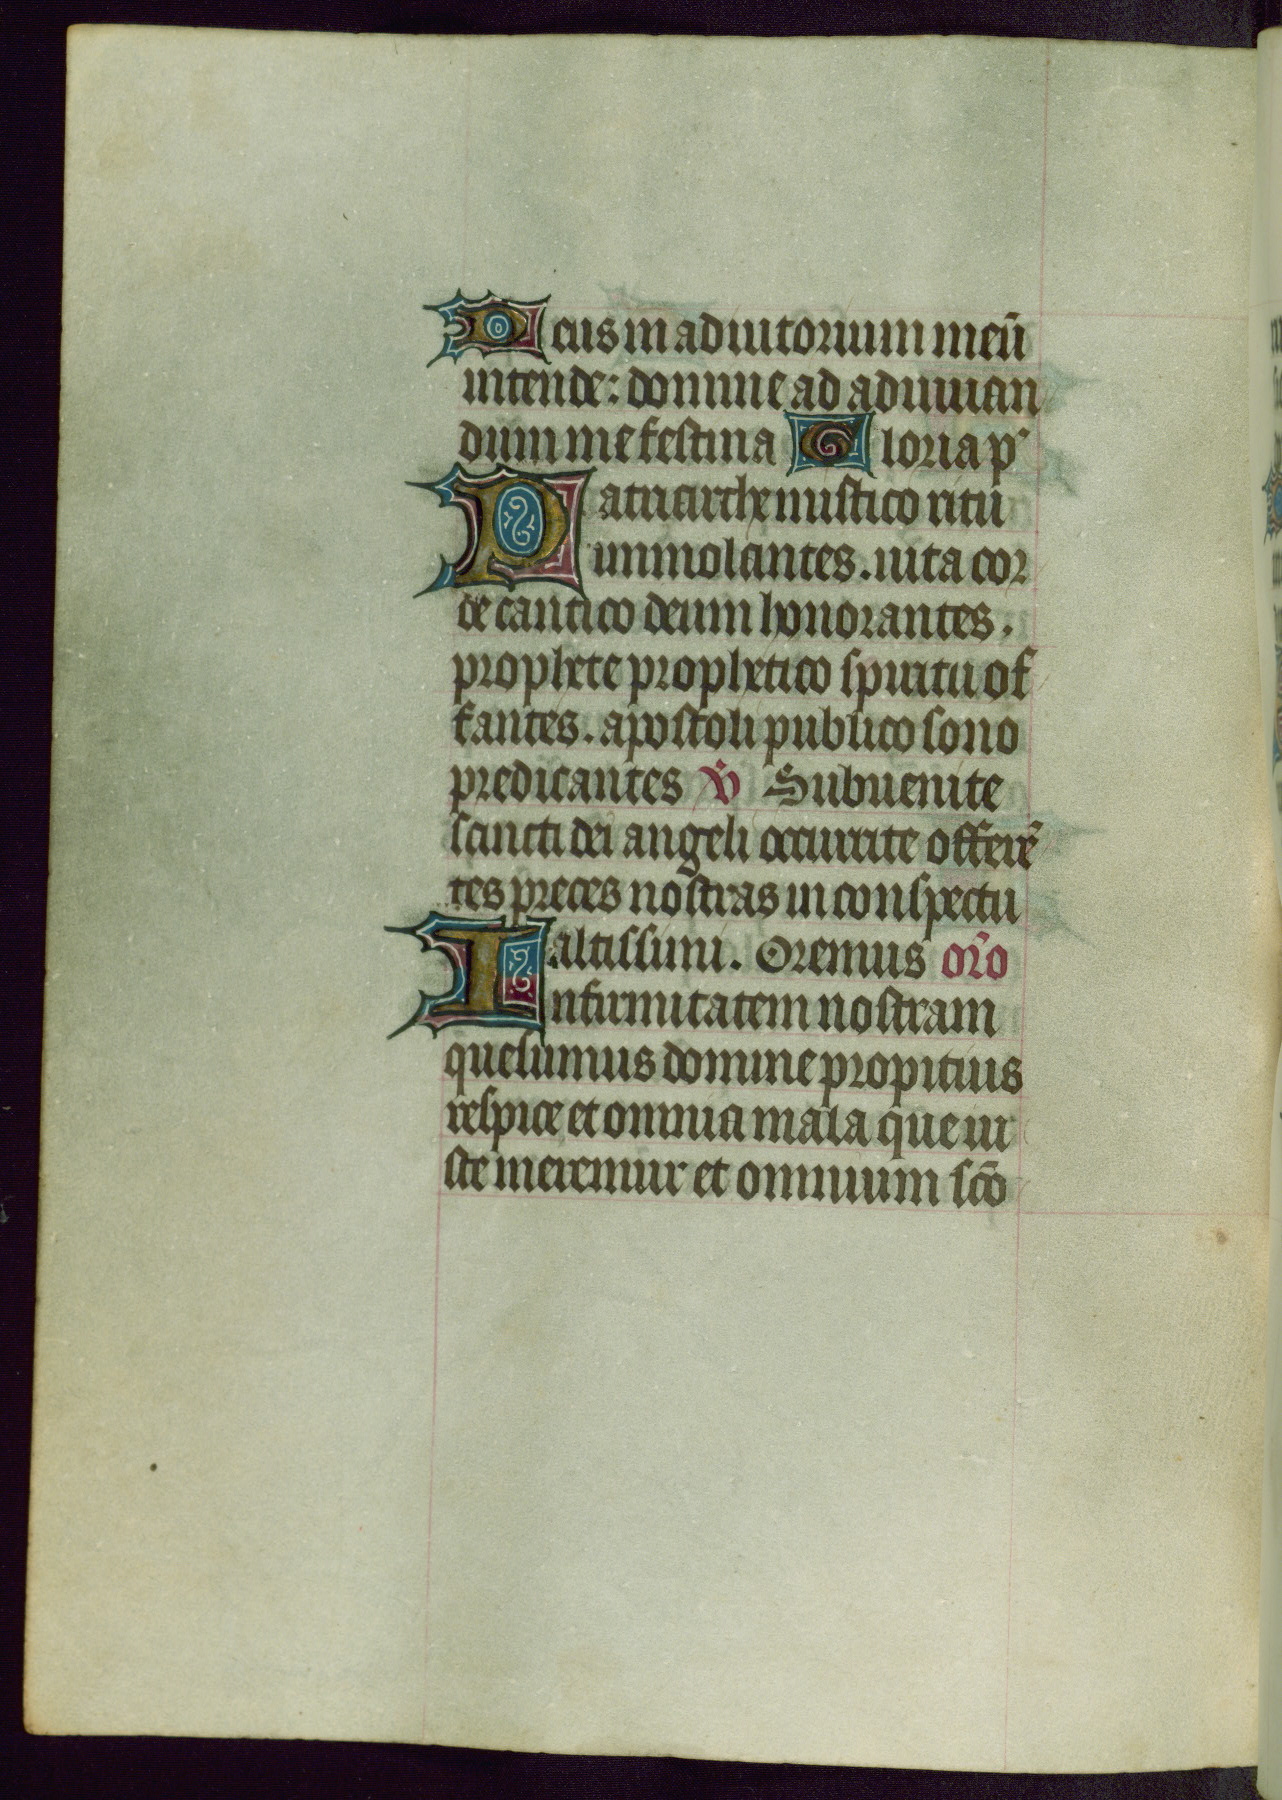 Deus in adiutorium meū
intende: domine ad adiuuan
dum me festina Gloria p
Patriarche mistico ritu
immolantes. iuta cor
de cantico deum honorantes.
prophete prophetico spiritu of
fantes. apostoli publico sono
predicantes v̄ Subuenite
sancti dei angeli occurrite offerē
tes preces nostras in conspectu
altissimi. Oremus or̄o
Infirmitatem nostram
quesumus domine propitius
respice et omnia mala que iu
ste meremur et omnium scō